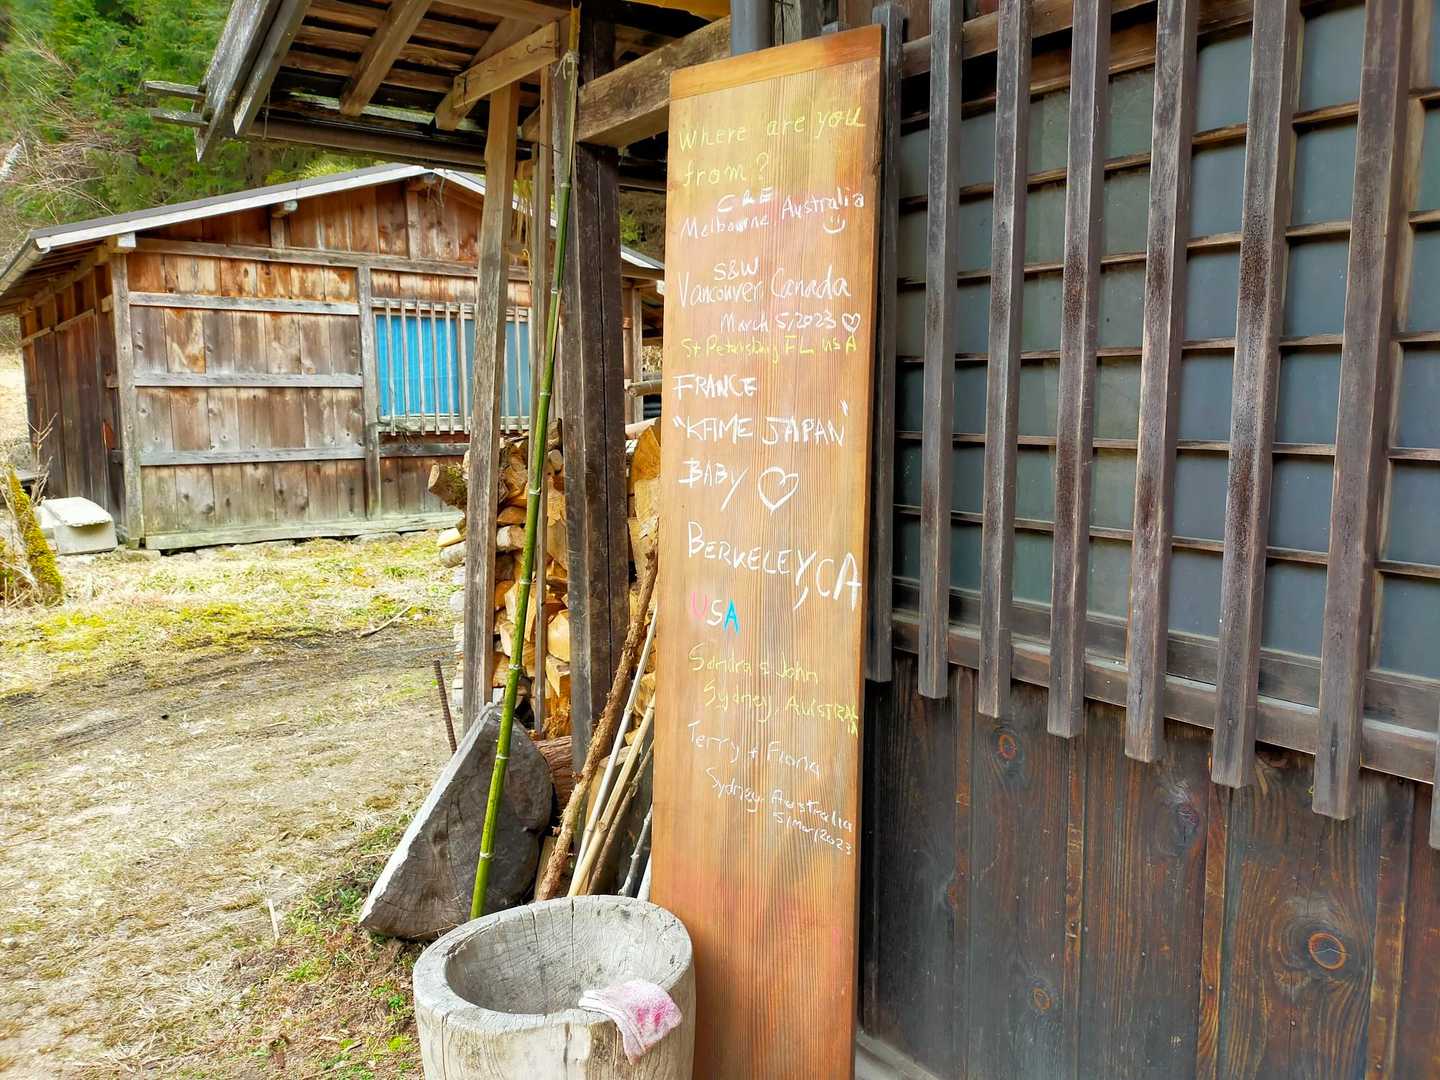 Where are you
from?
C & E
Melbourne, Australia
S&W
Vancouver, Canada
March 5, 2023
St Petersburg FL USA
FRANCE
"KAME JAPAN"
BABY
BERKELEY, CA
USA
Sandra & John
Sydney, AUSTRALIA
Terry + Fiona
Sydney, Australia
5/Mar/2023